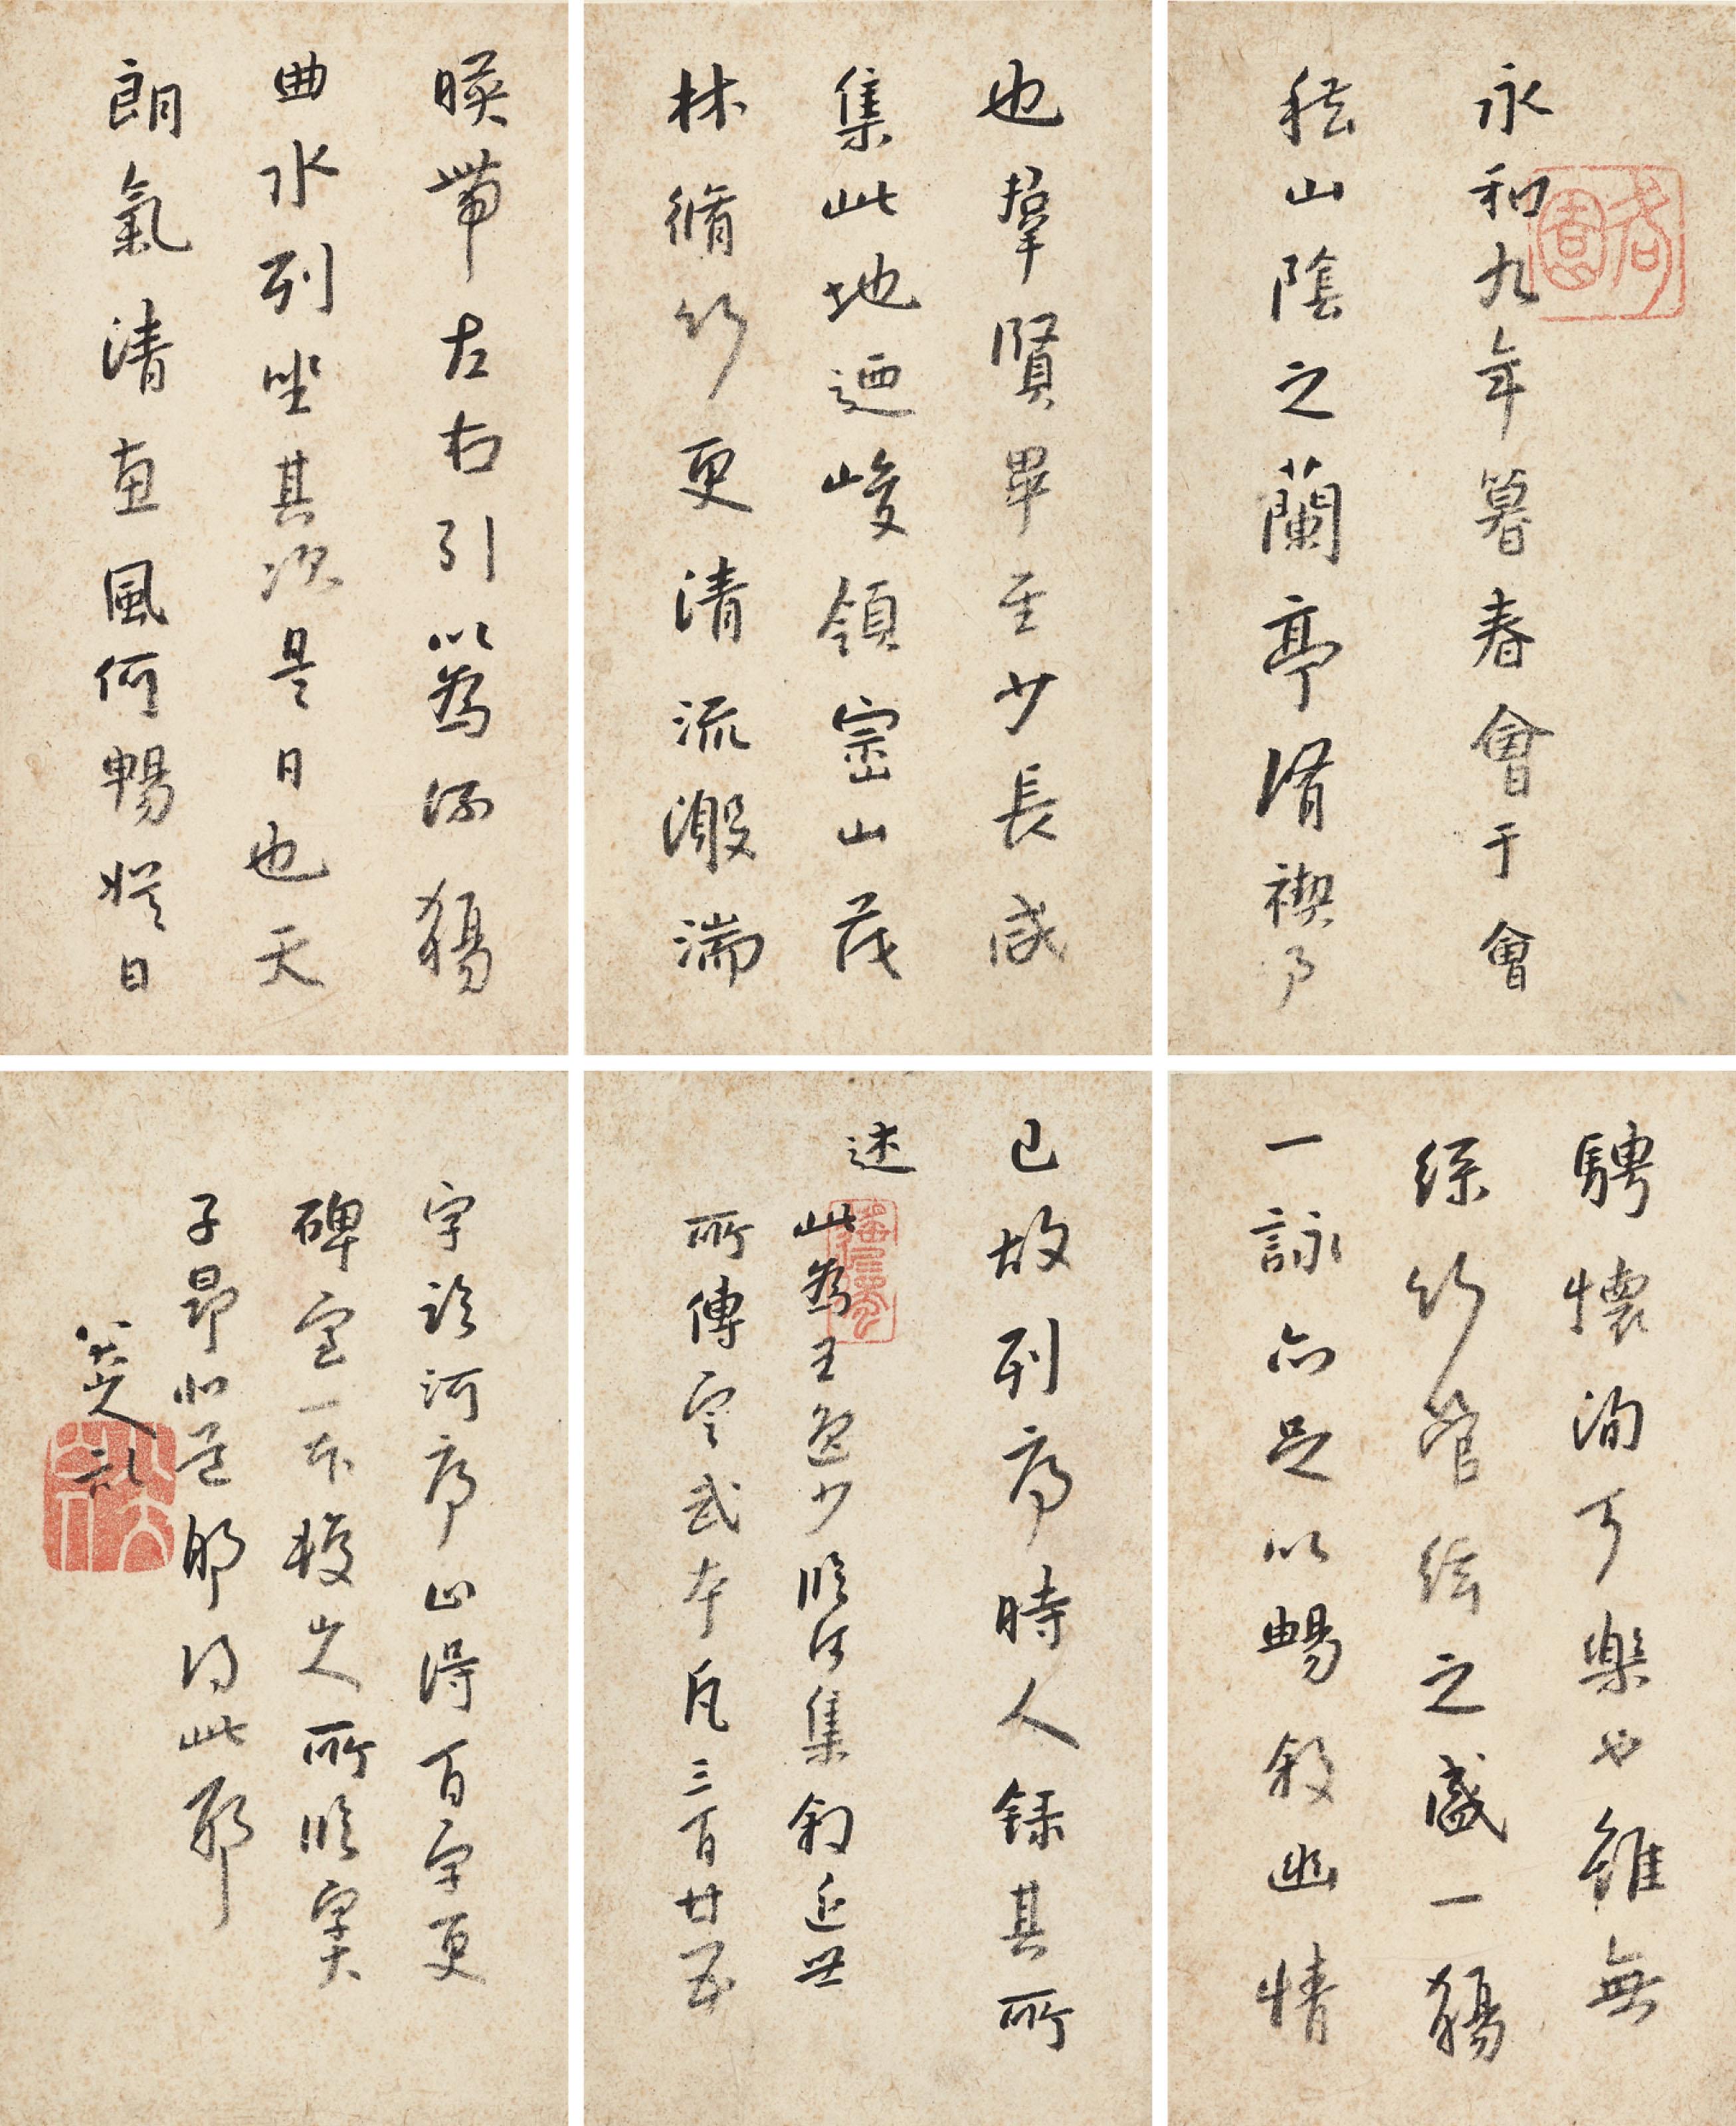 永和九年暮春會于會
嵇山陰之蘭亭脩禊事
也羣賢畢至少長咸
集此地迺峻領崇山茂
林脩竹更清流激湍
暎帶左右引以為流觴
曲水列坐其次是日也天
朗氣清惠風和暢娛目
騁懷洵可樂也雖無
絲竹管絃之盛一觴
一詠亦足以暢敘幽情
已故列序時人錄其所
述
此為王逸少臨河集敘近世
所傳定武本凡三百廿五
字該河序止得百字更
碑定一本後之人所臨
子昂如是那得此耶
八大山人記